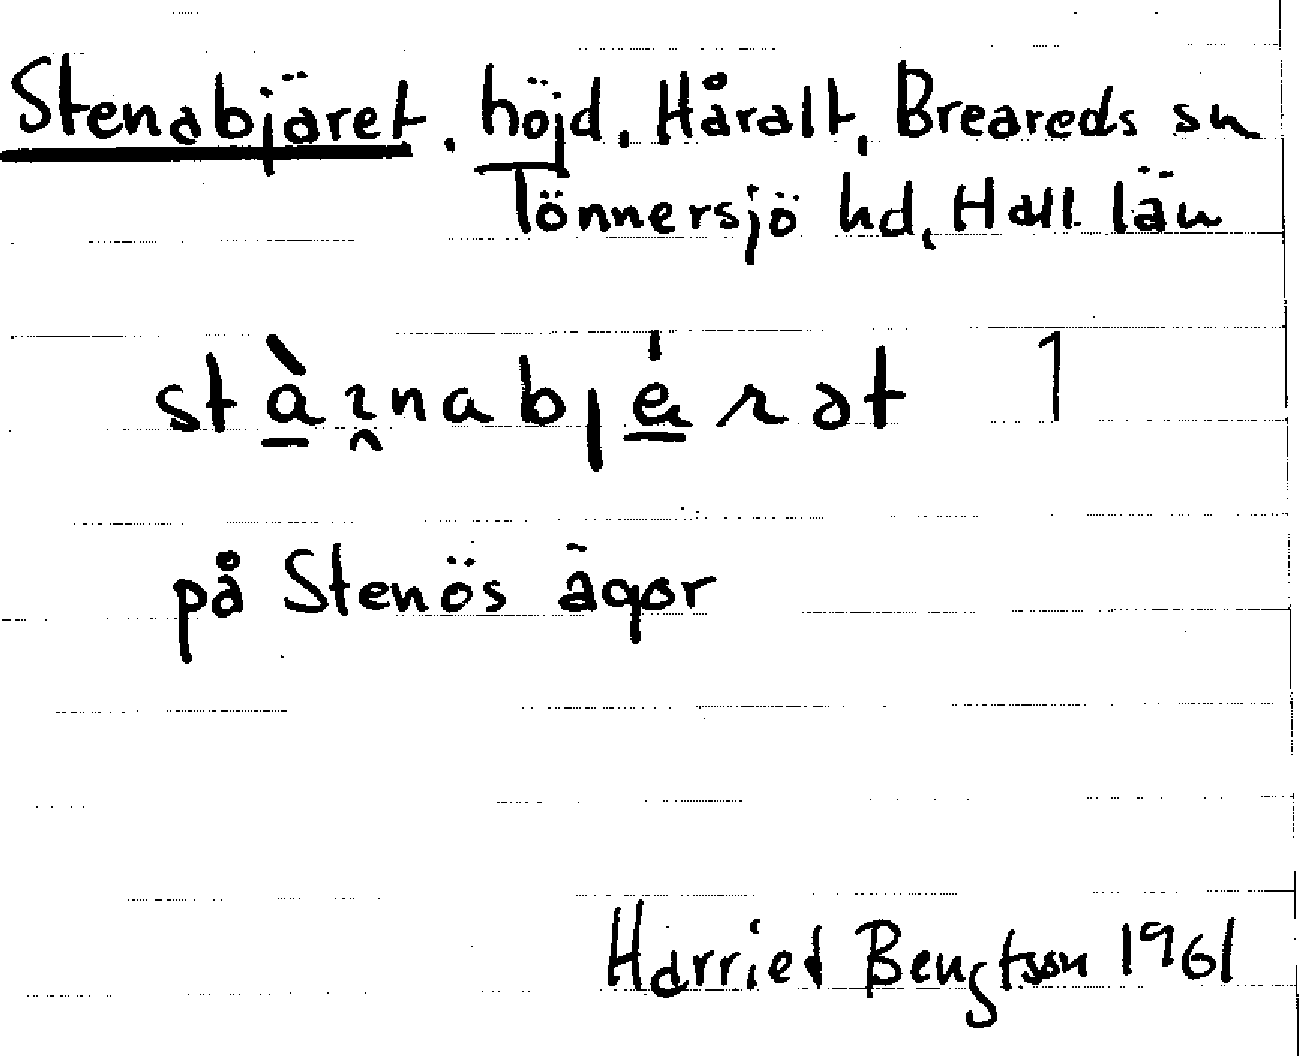 Stenabjäret. höjd. Håralt, Breareds sn
Tönnersjö hd, Hall. län
på Stenös ägor
Harriet Bengtsson 1961